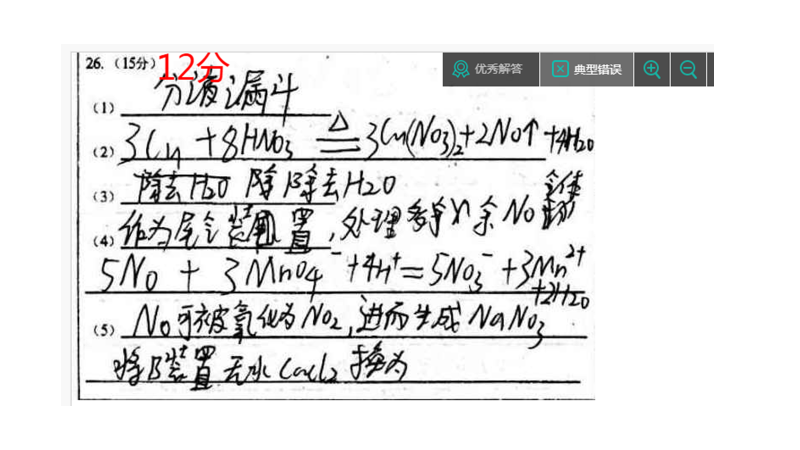 26.（15分）12分 优秀解答 典型错误
（1） 分液漏斗
（2） 3Cu + 8HNO3 △ 3Cu(NO3)2+2NO↑ +4H2O
（3） 除去H2O 除 除去H2O
（4） 作为尾气装置,处理 余NO
5NO + 3MnO4⁻ +4H⁺=5NO3⁻ +3Mn²⁺ +2H2O
（5） NO可被氧化为NO2,进而生成NaNO3
将B装置无水CaCl2换为